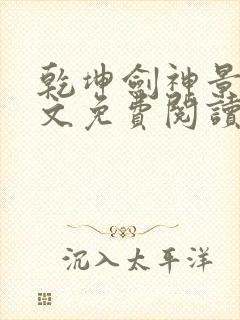 乾坤劍神景
文免費閱讀
沉入太平洋